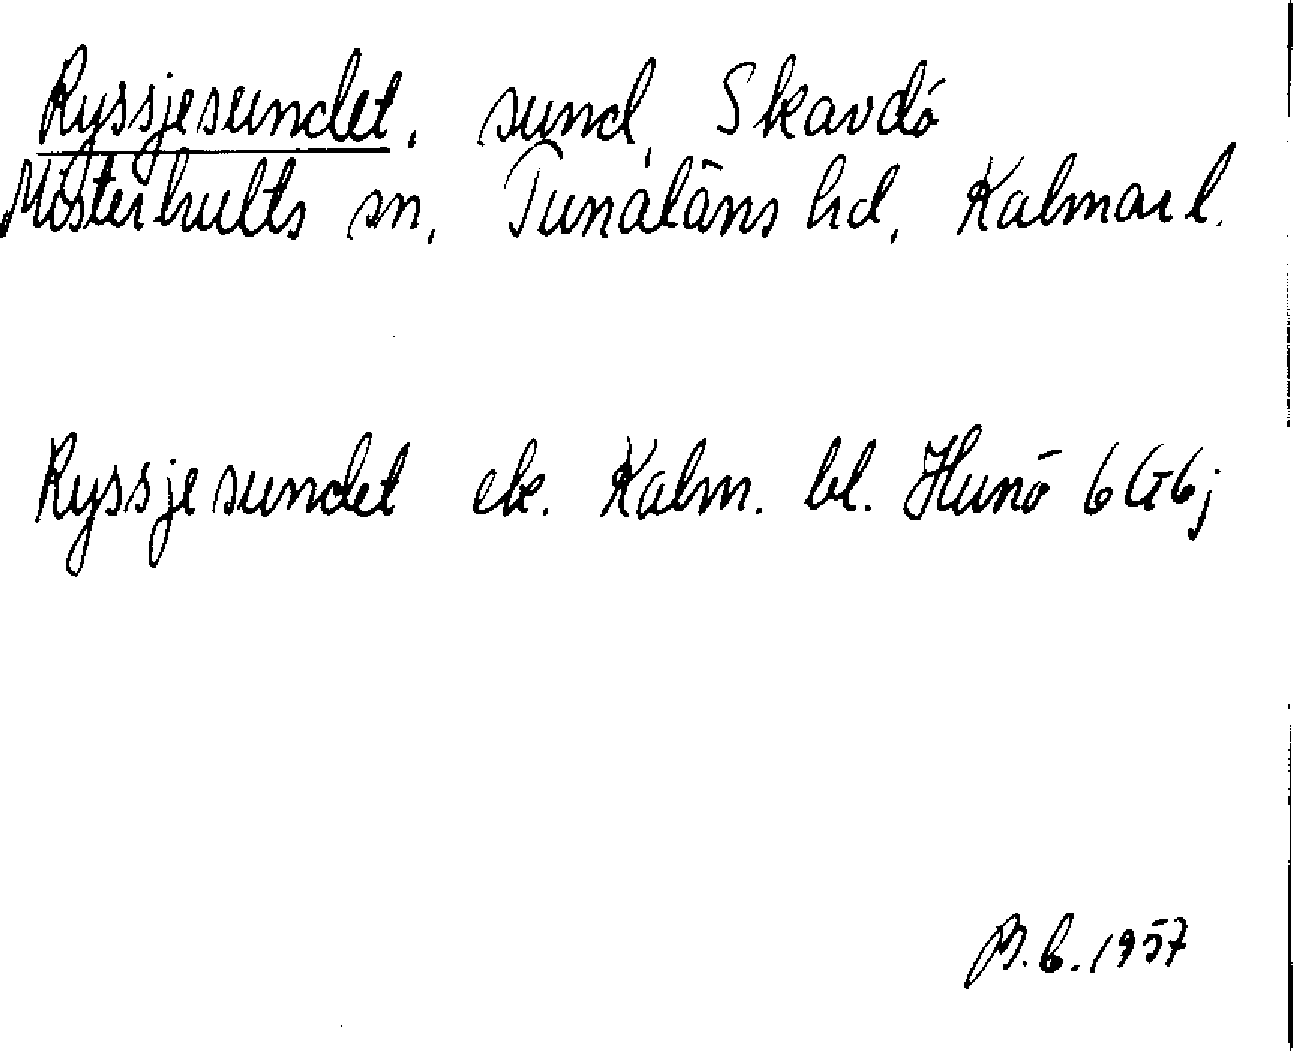 Ryssjesundet, sund, Skavdö
Misterhults sn, Tunaläns hd, Kalmar l.
Ryssjesundet ek. Kalm. bl. Hunö 6G6j
B.G. 1957